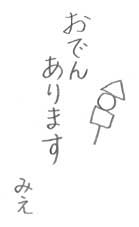 おでん
あります
みえ